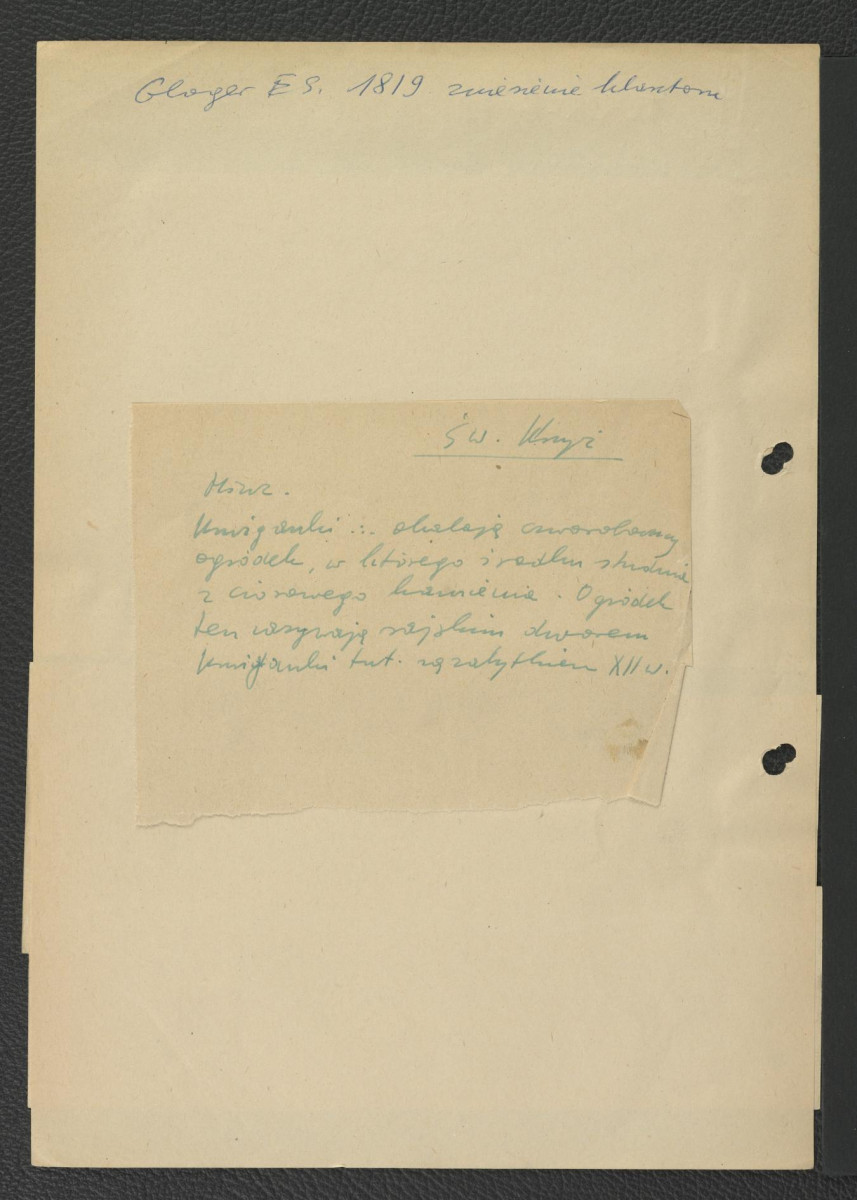 Gloger E S. 1819 zniesienie klasztoru
Św. Krzyż
Krużganki ... okalają czworoboczny
ogródek, w którego środku studnia
z ciosowego kamienia. Ogródek
ten nazywają rajskim dworem
Krużganki tut. są zabytkiem XII w.